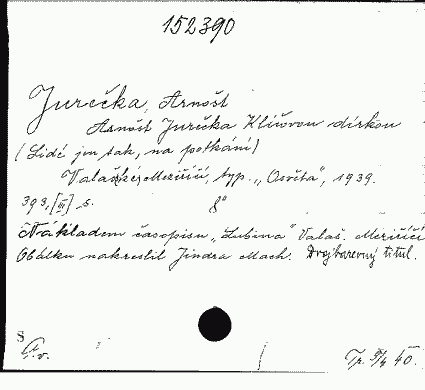 152390
Jurečka, Arnošt
Arnošt Jurečka Klíčovou dírkou
(Lidé jen tak, na potkání)
Valašské Meziříčí, typ. „Osvěta", 1939.
393, [III] s. 8°
Nákladem časopisu „Lubina" Valaš. Meziříčí
Obálku nakreslil Jindra Mach. Dvojbarevný titul.
S
Tp. 5/4 40.